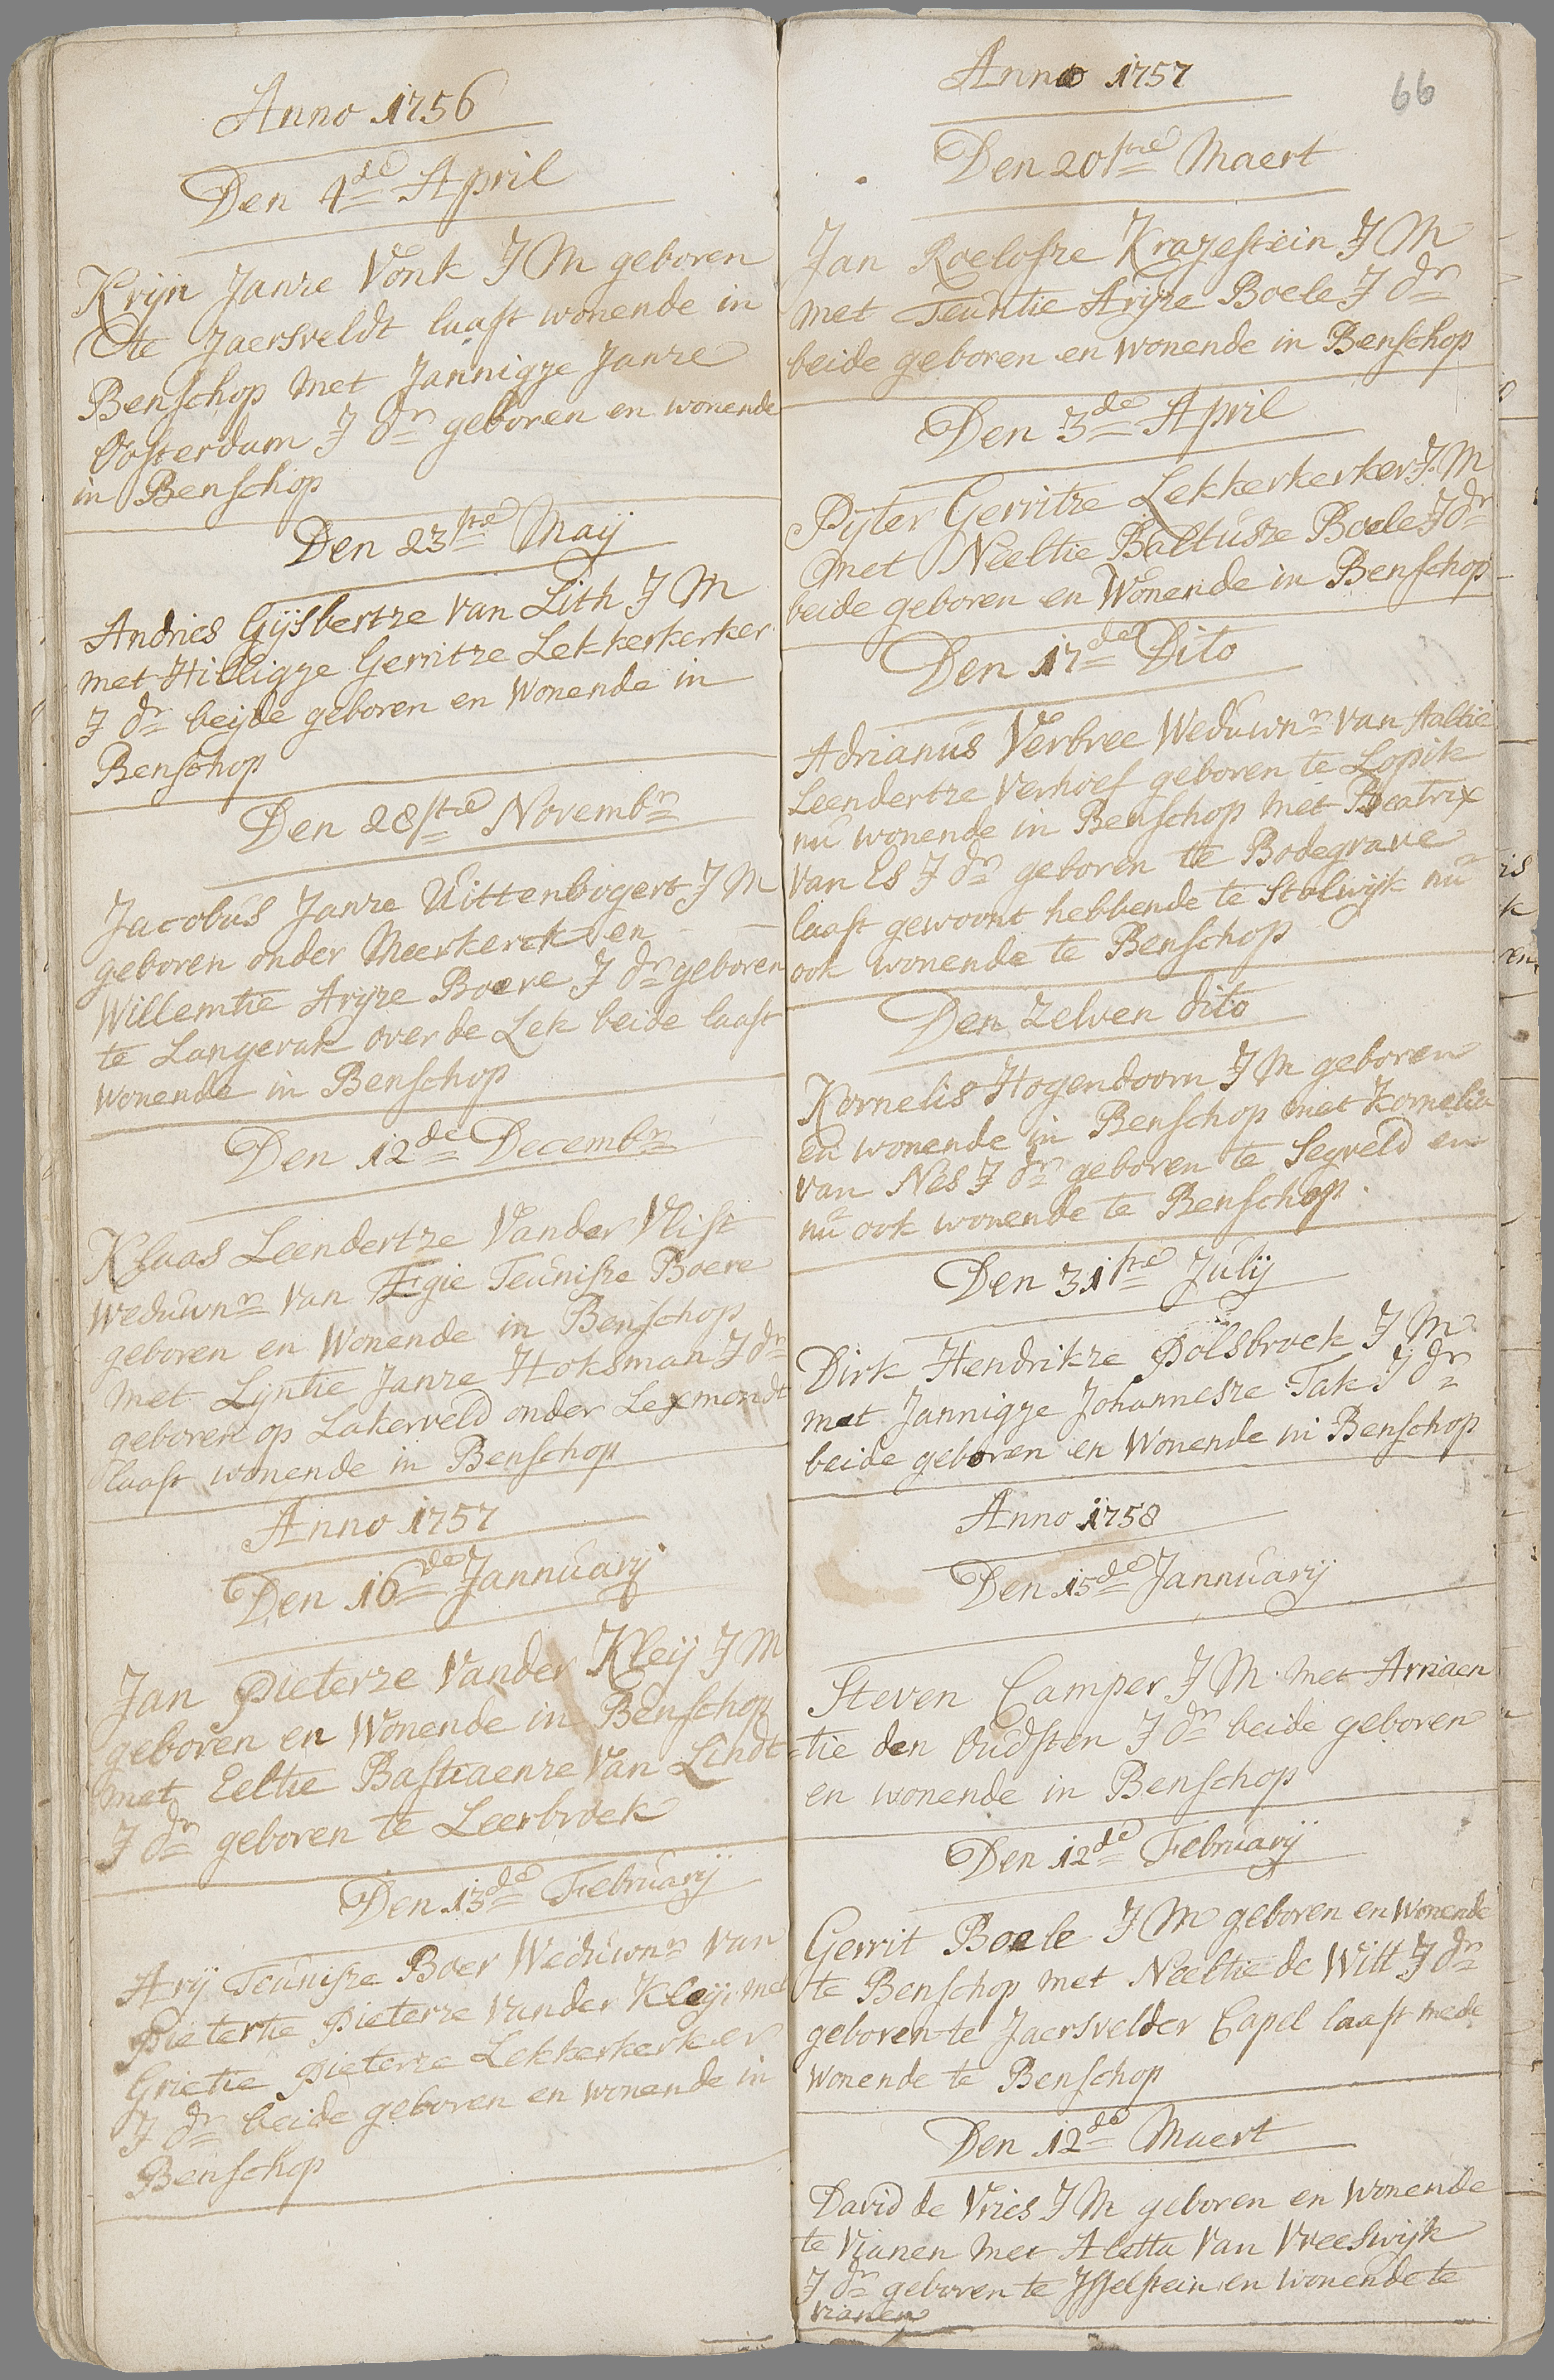 Anno 1756
Den 4de April
Krijn Janze Vonk J M geboren
te Jaersveldt laast wonende in
Benschop met Jannigje Janze
Oosterdam J dr geboren en wonende
in Benschop
Den 23ste Maÿ
Andries Gijsbertze van Lith J M
met Hilligje Gerritze Lekkerkerker
J dr beijde geboren en Wonende in
Benschop
Den 28ste Novembr
Jacobus Janze Uittenbogert J M
geboren onder Meerkerck en
Willemtie Arijze Boere J dr geboren
te Langerak over de Lek beide laast
wonende in Benschop
Den 12de Decembr
Klaas Leendertze Vander Vlist
Weduwnr van Ægie Teunisze Boere
geboren en Wonende in Benschop
met Lijntie Janze Hoksman J dr
geboren op Lakerveld onder Lexmondt
laast wonende in Benschop
Anno 1757
Den 16de Jannuarij
Jan Pieterze Vander Kleij J M
geboren en Wonende in Benschop
met Eeltie Bastiaenze Van Lindt
J dr geboren te Leerbroek
Den 13de Februarÿ
Arij Teunisze Boer Weduwnr van
Pietertie Pieterze Vander Kleij met
Grietie Pieterze Lekkerkerker
J dr beide geboren en wonende in
Benschop
66
Anno 1757
Den 20ste Maert
Jan Roelofze Krazestein J M
met Teuntie Arijze Boele J dr
beide geboren en wonende in Benschop
Den 3de April
Pijter Gerritze Lekkerkerker J M
met Neeltie Baltusze Boele J dr
beide geboren en Wonende in Benschop
Den 17de Dito
Adrianus Verbree Weduwnr Van Aaltie
Leendertze Verhoef geboren te Lopik
nu wonende in Benschop met Beatrix
van Es J dr geboren te Bodegrave
laast gewoont hebbende te Stolwijk nu
ook wonende te Benschop
Den Zelven dito
Kornelis Hogendoorn J M geboren
en wonende in Benschop met Kornelia
van Nes J dr geboren te Segveld en
nu ook wonende te Benschop.
Den 31ste Julij
Dirk Hendrikze Polsbroek J M
met Jannigje Johannesze Tak J dr
beide geboren en Wonende in Benschop
Anno 1758
Den 15de Jannuarÿ
Steven Camper J M met Arriaen
tie den Oudsten J dr beide geboren
en wonende in Benschop
Den 12de Februarÿ
Gerrit Boele J M geboren en Wonende
te Benschop met Neeltie de Witt J dr
geboren te Jaersvelder Capel laast mede
Wonende te Benschop
Den 12de Maert
David de Vries J M geboren en Wonende
te Vianen met Aletta Van Vreeswijk
J dr geboren te Jsselstein en wonende te
Vianen